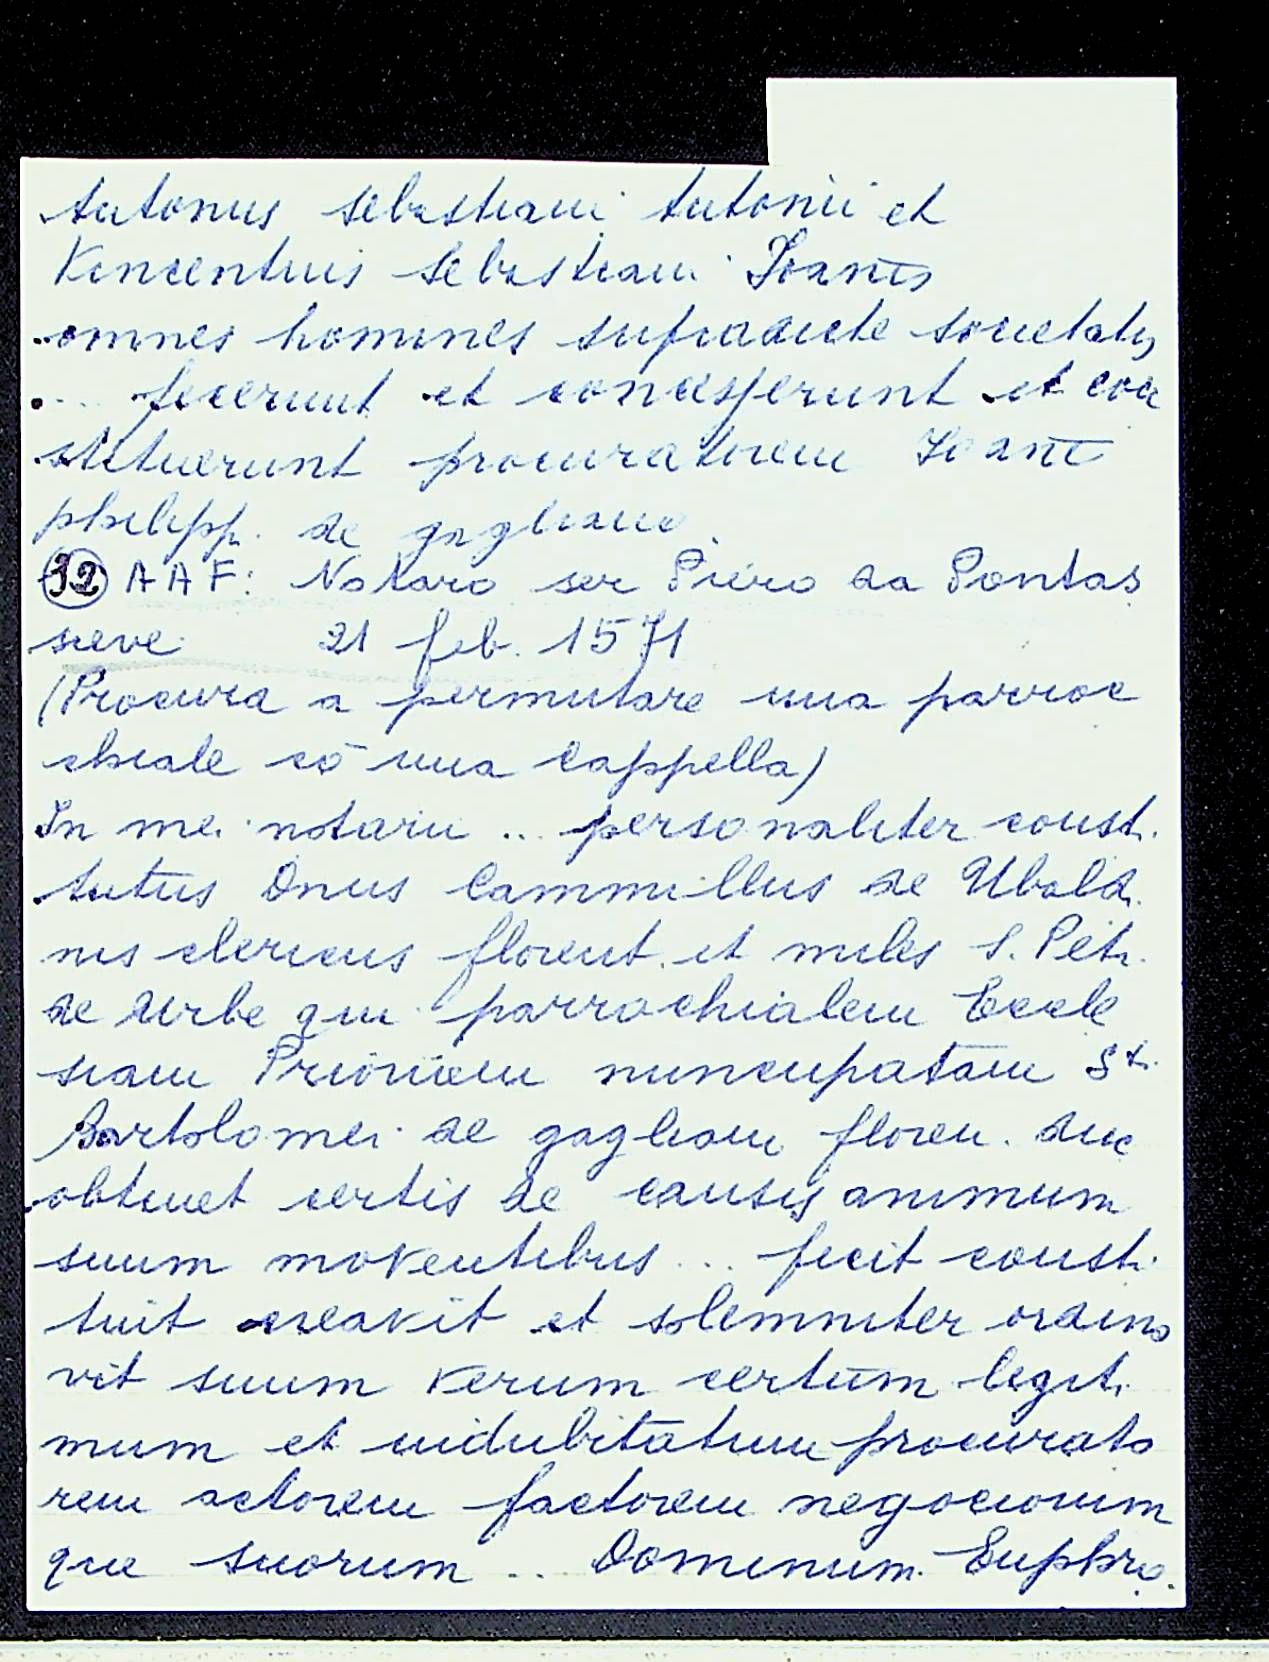 Antonus Sebastiani Antonii et
Vencentius Sebastiani Joanis
omnes homines supradicte societatis
... fecerunt et concesserunt et con
stituerunt procuratorem Joani
philipp. de gagliano.
(32) A A F: Notaro ser Piero da Pontas
sieve 21 feb. 1571
(Procura a permutare una parroc
chiale cō una cappella)
In mei notarii .. personaliter consti
tutus Dnus Cammillus de Ubaldi
nis clericus florent. et miles S. Petri
de Urbe qui parrochialem Eccle
siam Prioriam nuncupatam Sti
Bartolomei de gagliani floren. duc
obtinet certis de causis animum
suum moventibus ... fecit consti
tuit creavit et solemniter ordina
vit suum verum certum legiti
mum et indubitatum procurato
rem actorem factorem negociorum
que suorum .. Dominum Euphro